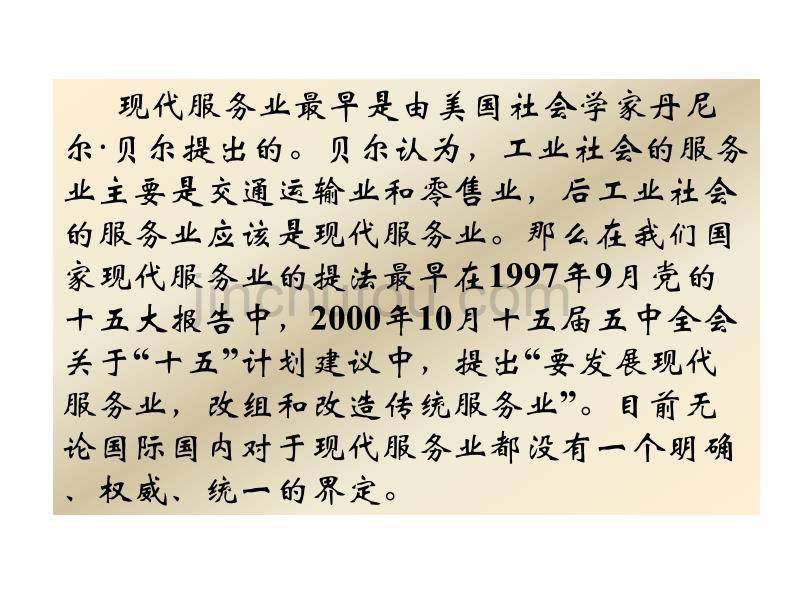 现代服务业最早是由美国社会学家丹尼
尔·贝尔提出的。贝尔认为，工业社会的服务
业主要是交通运输业和零售业，后工业社会
的服务业应该是现代服务业。那么在我们国
家现代服务业的提法最早在1997年9月党的
十五大报告中，2000年10月十五届五中全会
关于“十五”计划建议中，提出“要发展现代
服务业，改组和改造传统服务业”。目前无
论国际国内对于现代服务业都没有一个明确
、权威、统一的界定。
jinchutou.com